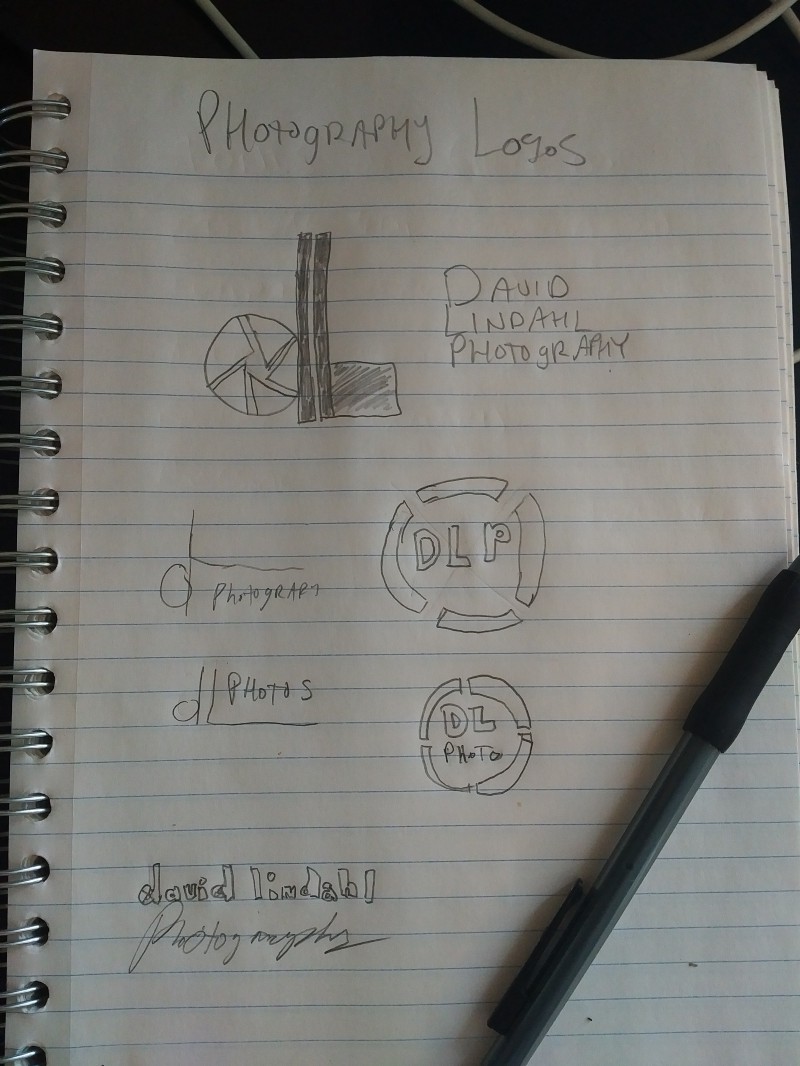 PHOTOGRAPHY LOGOS
dL
DAVID
LINDAHL
PHOTOGRAPHY
dL
PHOTOGRAPY
DLP
dL PHOTOS
DL
PHOTO
david lindahl
Photography